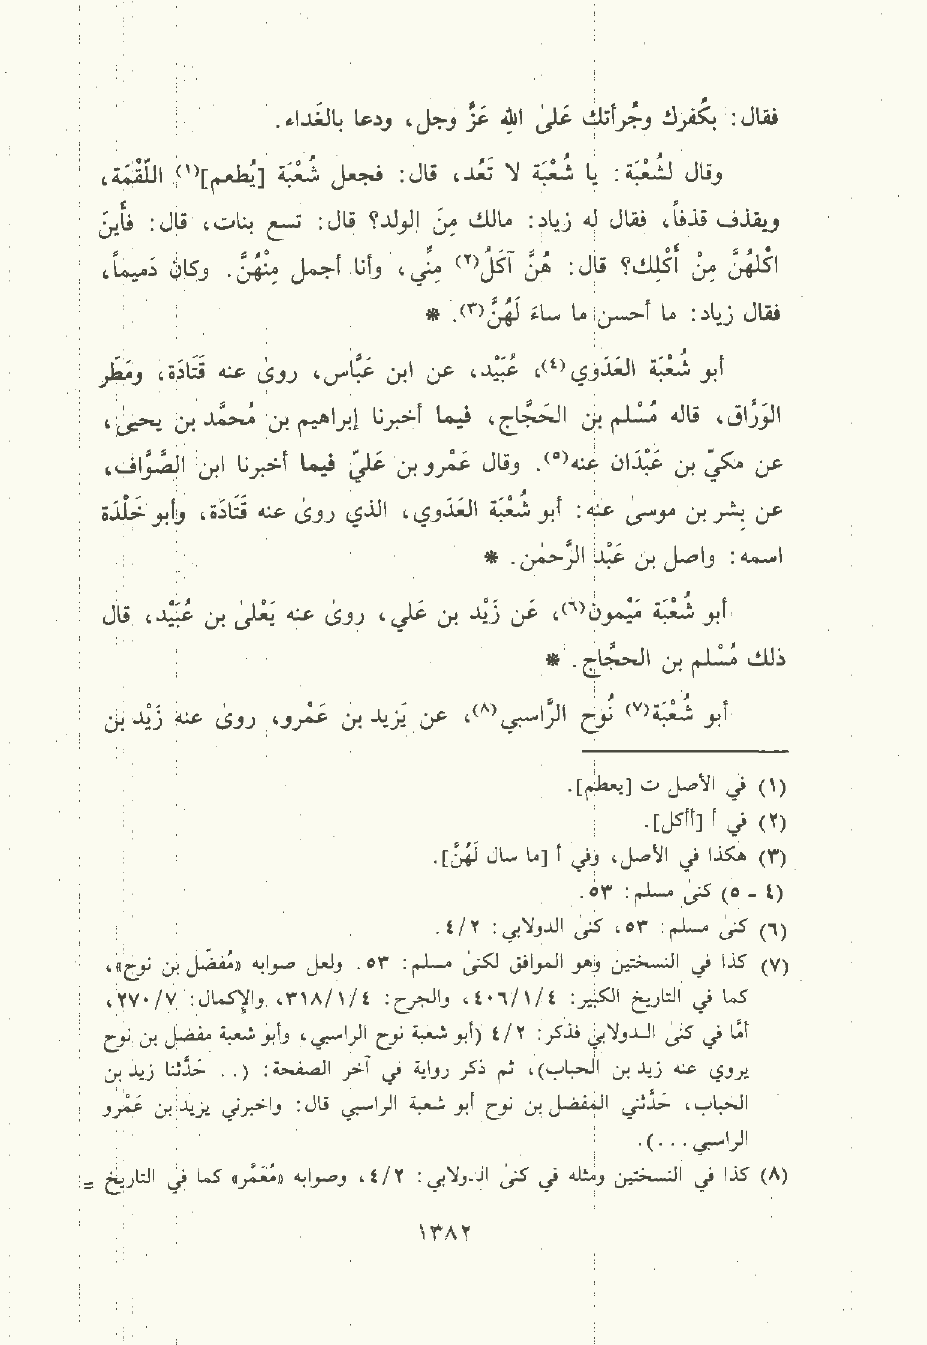 فقال: بكُفرك وجُرأتك علىٰ الله عَزَّ وجل، ودعا بالغَداء.
وقال لشُعْبَة: يا شُعْبَة لا تَعُد، قال: فجعل شُعْبَة [يُطعم](١) اللّقْمَة،
ويقذف قذفاً، فقال له زياد: مالك مِنَ الولد؟ قال: تسع بنات، قال: فأينَ
اكْلهُنَّ مِنْ أكْلِك؟ قال: هُنَّ آكَلُ(٢) مِنِّي، وأنا أجمل مِنْهُنَّ. وكان دَميماً،
فقال زياد: ما أحسن ما ساءَ لَهُنَّ(٣). *
أبو شُعْبَة العَدَوي(٤)، عُبَيْد، عن ابن عَبَّاس، روىٰ عنه قَتَادَة، ومَطَر
الوَرَّاق، قاله مُسْلم بن الحَجَّاج، فيما أخبرنا إبراهيم بن مُحمَّد بن يحيىٰ،
عن مكيّ بن عَبْدان عنه(٥). وقال عَمْرو بن عَليّ فيما أخبرنا ابن الصَّوَّاف،
عن بِشر بن موسىٰ عنه: أبو شُعْبَة العَدَوي، الذي روىٰ عنه قَتَادَة، وأبو خَلْدَة
اسمه: واصل بن عَبْد الرَّحمٰن. *
أبو شُعْبَة مَيْمون(٦)، عَن زَيْد بن عَلي، روىٰ عنه يَعْلىٰ بن عُبَيْد، قال
ذلك مُسْلم بن الحجَّاج. *
أبو شُعْبَة(٧) نُوح الرَّاسبي(٨)، عن يَزيد بن عَمْرو، روىٰ عنه زَيْد بن
(١) في الأصل ت [يعظم].
(٢) في أ [أأكل].
(٣) هكذا في الأصل، وفي أ [ما سال لَهُنَّ].
(٤ - ٥) كنىٰ مسلم: ٥٣.
(٦) كنىٰ مسلم: ٥٣، كنىٰ الدولابي: ٤/٢.
(٧) كذا في النسختين وهو الموافق لكنىٰ مسلم: ٥٣. ولعل صوابه «مُفضَّل بن نوح»،
كما في التاريخ الكبير: ٤٠٦/١/٤، والجرح: ٣١٨/١/٤، والإكمال: ٢٧٠/٧،
أمَّا في كنىٰ الدولابي فذكر: ٤/٢ (أبو شعبة نوح الراسبي، وأبو شعبة مفضل بن نوح
يروي عنه زيد بن الحباب)، ثم ذكر رواية في آخر الصفحة: (.. حَدَّثنا زيد بن
الحباب، حَدَّثني المفضل بن نوح أبو شعبة الراسبي قال: واخبرني يزيد بن عَمْرو
الراسبي...).
(٨) كذا في النسختين ومثله في كنىٰ الدولابي: ٤/٢، وصوابه «مُعَمَّر» كما في التاريخ =
١٣٨٢